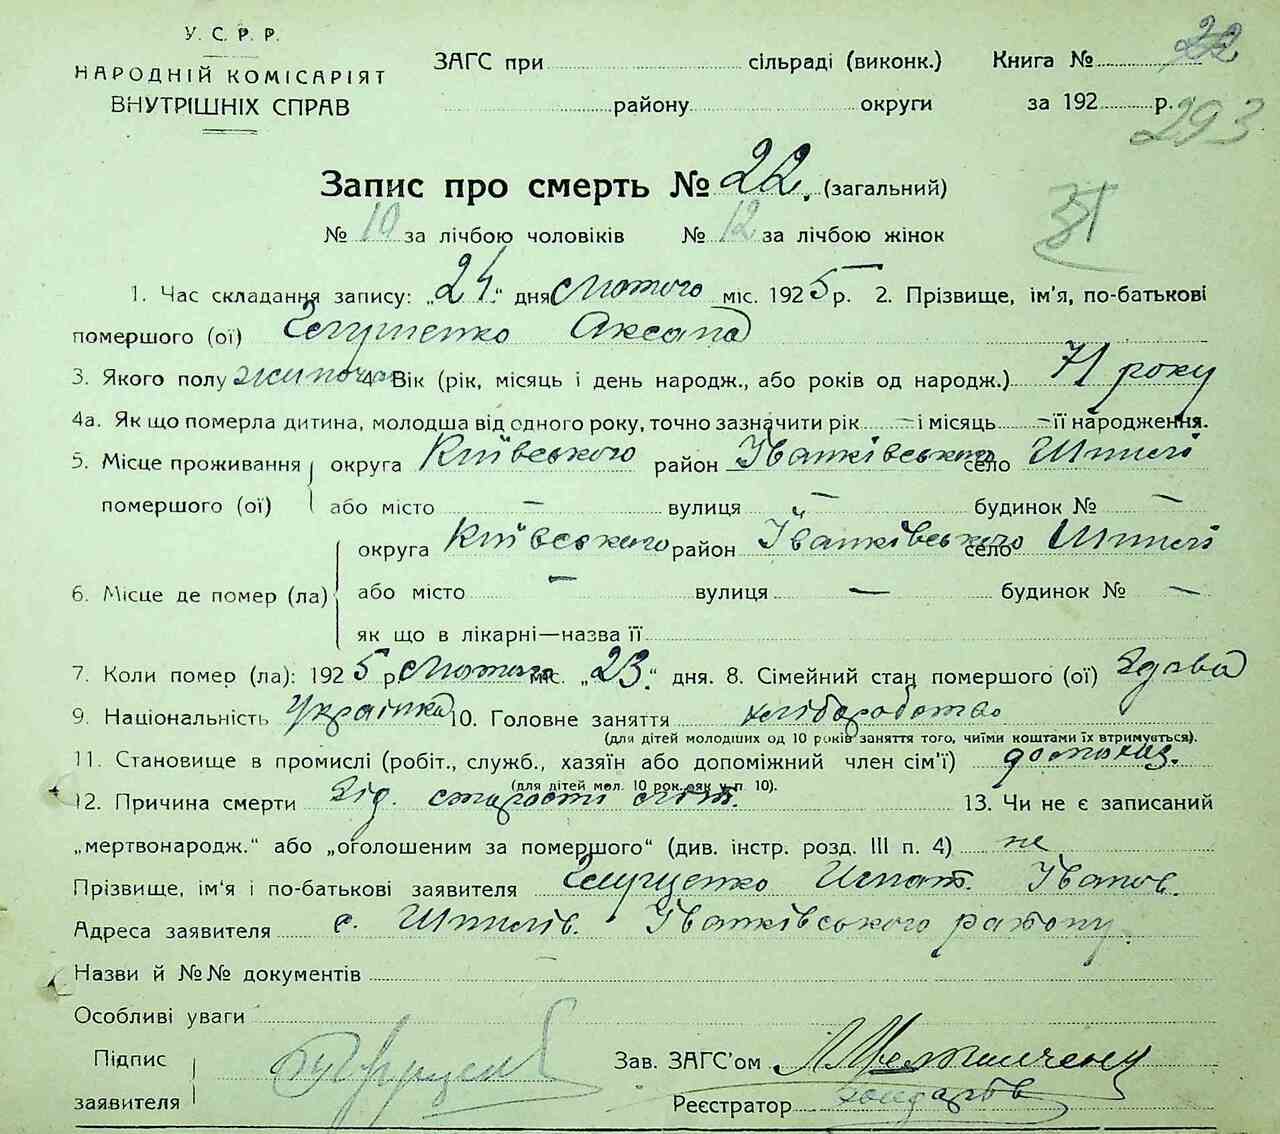 У. С. Р. Р.
НАРОДНІЙ КОМІСАРІЯТ
ВНУТРІШНІХ СПРАВ
ЗАГС при сільраді (виконк.) Книга № 22
району округи за 192 р.
293
Запис про смерть № 22. (загальний)
№ 10 за лічбою чоловіків № 12 за лічбою жінок
1. Час складання запису: „24.“ дня Лютого міс. 1925 р. 2. Прізвище, ім'я, по-батькові
помершого (ої)
3. Якого полу жіночої 4. Вік (рік, місяць і день народж., або років од народж.) 71 року
4а. Як що померла дитина, молодша від одного року, точно зазначити рік — і місяць — її народження.
5. Місце проживання округа Київського район Іванківського село Шпилі
помершого (ої) або місто — вулиця — будинок № —
округа Київського район Іванківського село Шпилі
6. Місце де помер (ла) або місто — вулиця — будинок № —
як що в лікарні—назва її
7. Коли помер (ла): 1925 р. Лютого міс. „23.“ дня. 8. Сімейний стан помершого (ої) Вдова
9. Національність Українка 10. Головне заняття хліборобство
(для дітей молодших од 10 років заняття того, чиїми коштами їх втримується).
11. Становище в промислі (робіт., служб., хазяїн або допоміжний член сім'ї) домохаз.
(для дітей мол. 10 рок. як у п. 10).
12. Причина смерти Від. старости літ. 13. Чи не є записаний
„мертвонародж.“ або „оголошеним за помершого“ (див. інстр. розд. III п. 4) ні
Прізвище, ім'я і по-батькові заявителя Іванов.
Адреса заявителя с. Шпилів. Іванківського району.
Назви й №№ документів
Особливі уваги
Підпис
заявителя
Зав. ЗАГС'ом
Реєстратор